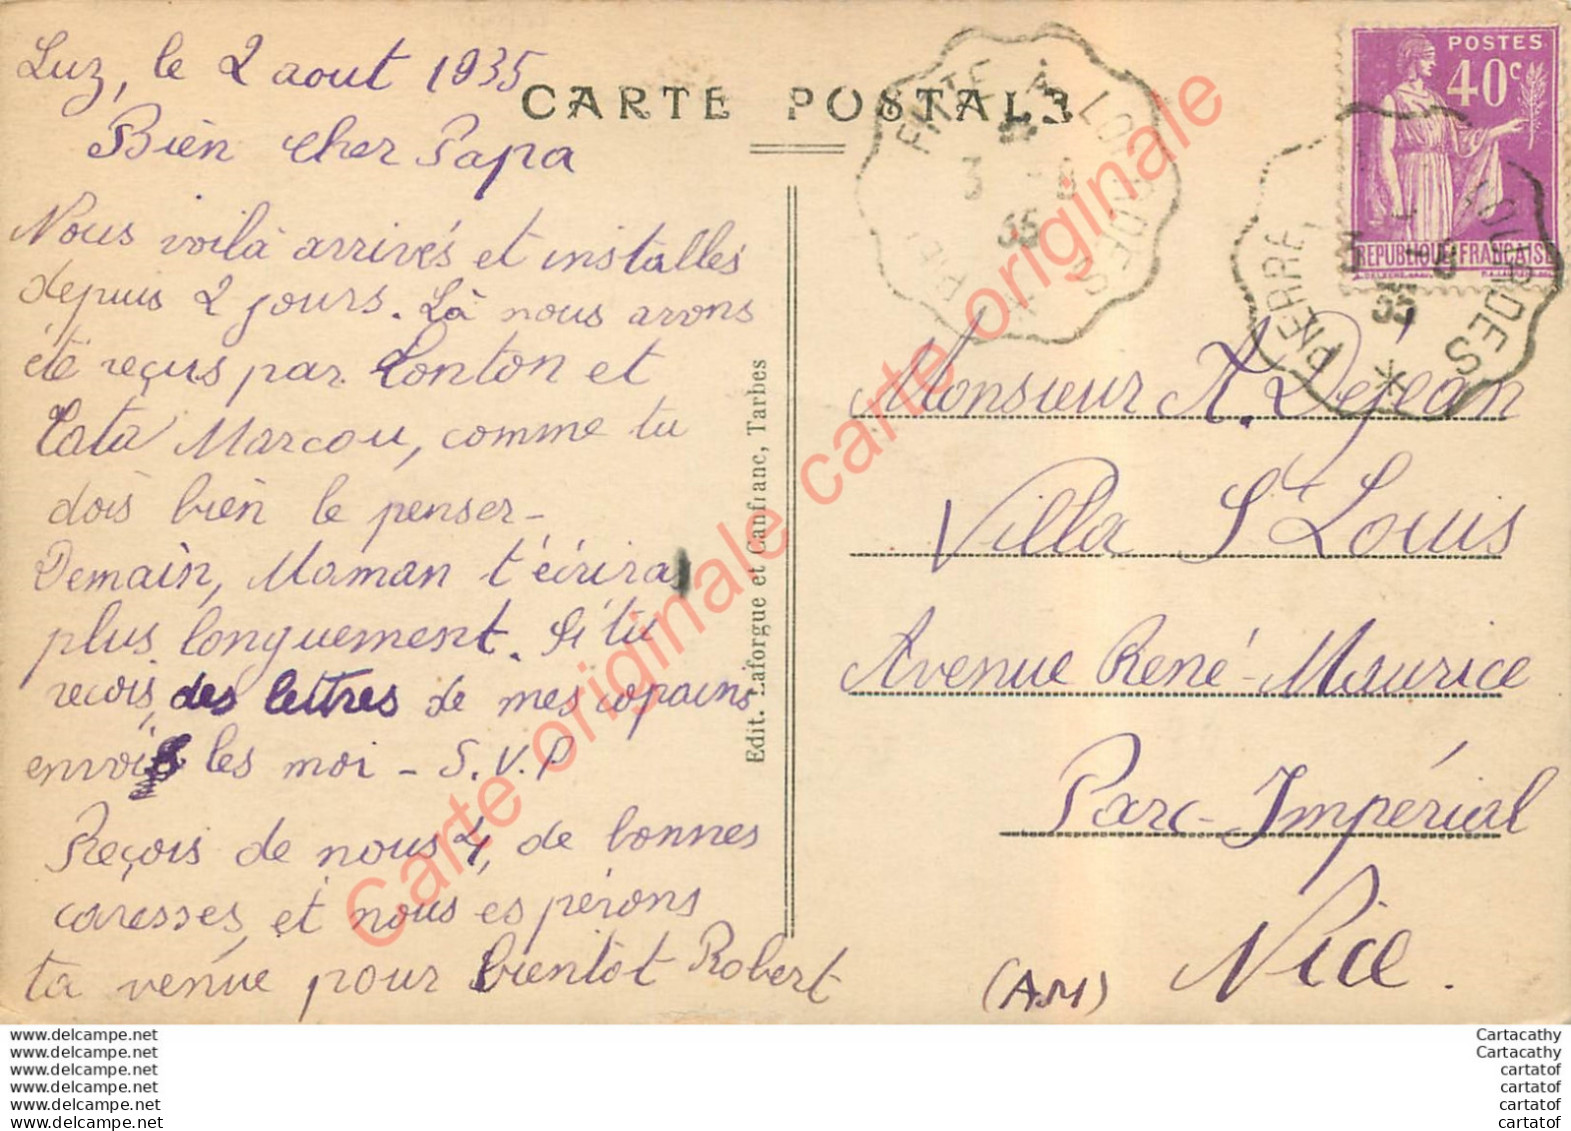 Luz, le 2 aout 1935
CARTE POSTALE
Bien cher Papa
Nous voilà arrivés et installés
depuis 2 jours. Là nous avons
été reçus par Tonton et
Tata Marcou, comme tu
dois bien le penser-
Demain, Maman t'écriras
plus longuement. Si tu
recois des lettres de mes copains
envoi les moi - S.V.P
Reçois de nous 4, de bonnes
caresses, et nous espérons
ta venue pour bientôt Robert
Edit. Laforgue et Canfranc, Tarbes
POSTES
40c
REPUBLIQUE FRANÇAISE
PIERREFITTE A LOURDES
3 - 8
35
PIERRE LOURDES
3 - 8
35
Monsieur A. Dejean
Villa St Louis
Avenue René-Maurice
Parc-Impérial
Nice.
(AM)
Carte originale carte originale carte originale
www.delcampe.net
www.delcampe.net
www.delcampe.net
www.delcampe.net
www.delcampe.net
www.delcampe.net
Cartacathy
Cartacathy
cartatof
cartatof
cartatof
cartatof